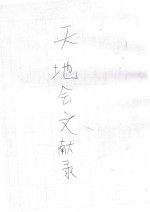 天地会文献录